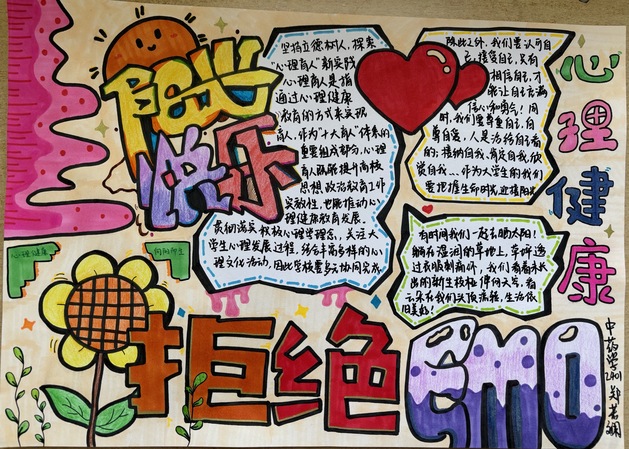 阳光
快乐
坚持立德树人，探索
“心理育人”新实践
心理育人是指
通过心理健康
教育的方式来实现
育人，作为“十大育人”体系的
重要组成部分，心理
育人既能提升高校
思想政治教育工作
实效性，也能推动心
理健康教育发展。
贯彻落实积极心理学理念，关注大
学生心理发展过程，结合丰富多样的心
理文化活动，因此学校要多元协同完成
除此之外，我们要认可自
己，接受自己，只有
相信自己，才
能让自己充满
信心和勇气！同
时，我们要尊重自己，自
尊自爱，人是为活给自己看
的；接纳自我，肯定自我，欣
赏自我……作为大学生的我们
要把握生命时光，迎接阳光
有时间我们一起去晒太阳！
躺在湿润的草地上，草坪透
过衣服刺痛你，我们看着大
出的新生枝桠伸向天写，看
云朵在我们头顶流转，生活依
旧美好！
心理健康
心理健康
向阳而生
拒绝EMO
中药学2401 郑若